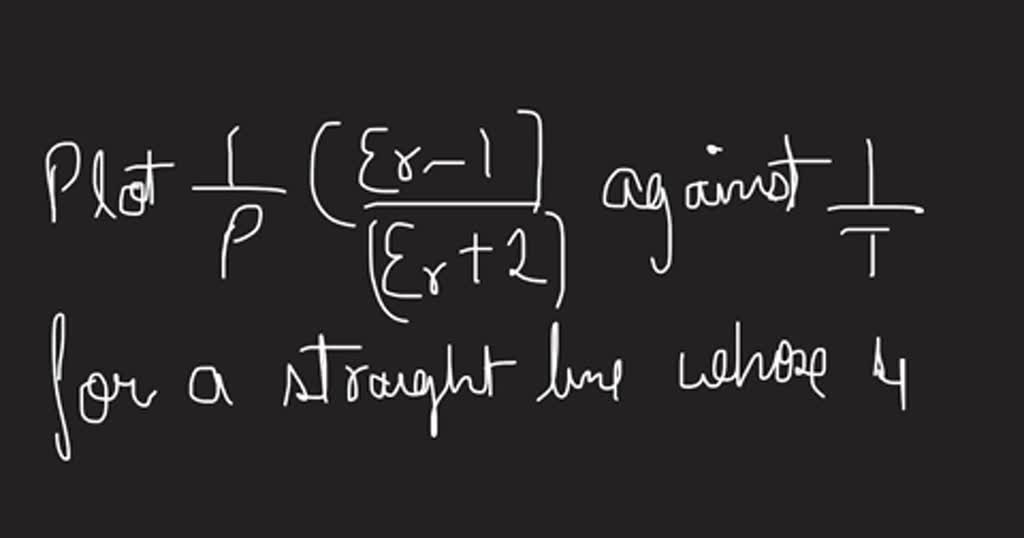 Plot 1/P (εr-1)/(εr+2) against 1/T
for a straight line whose